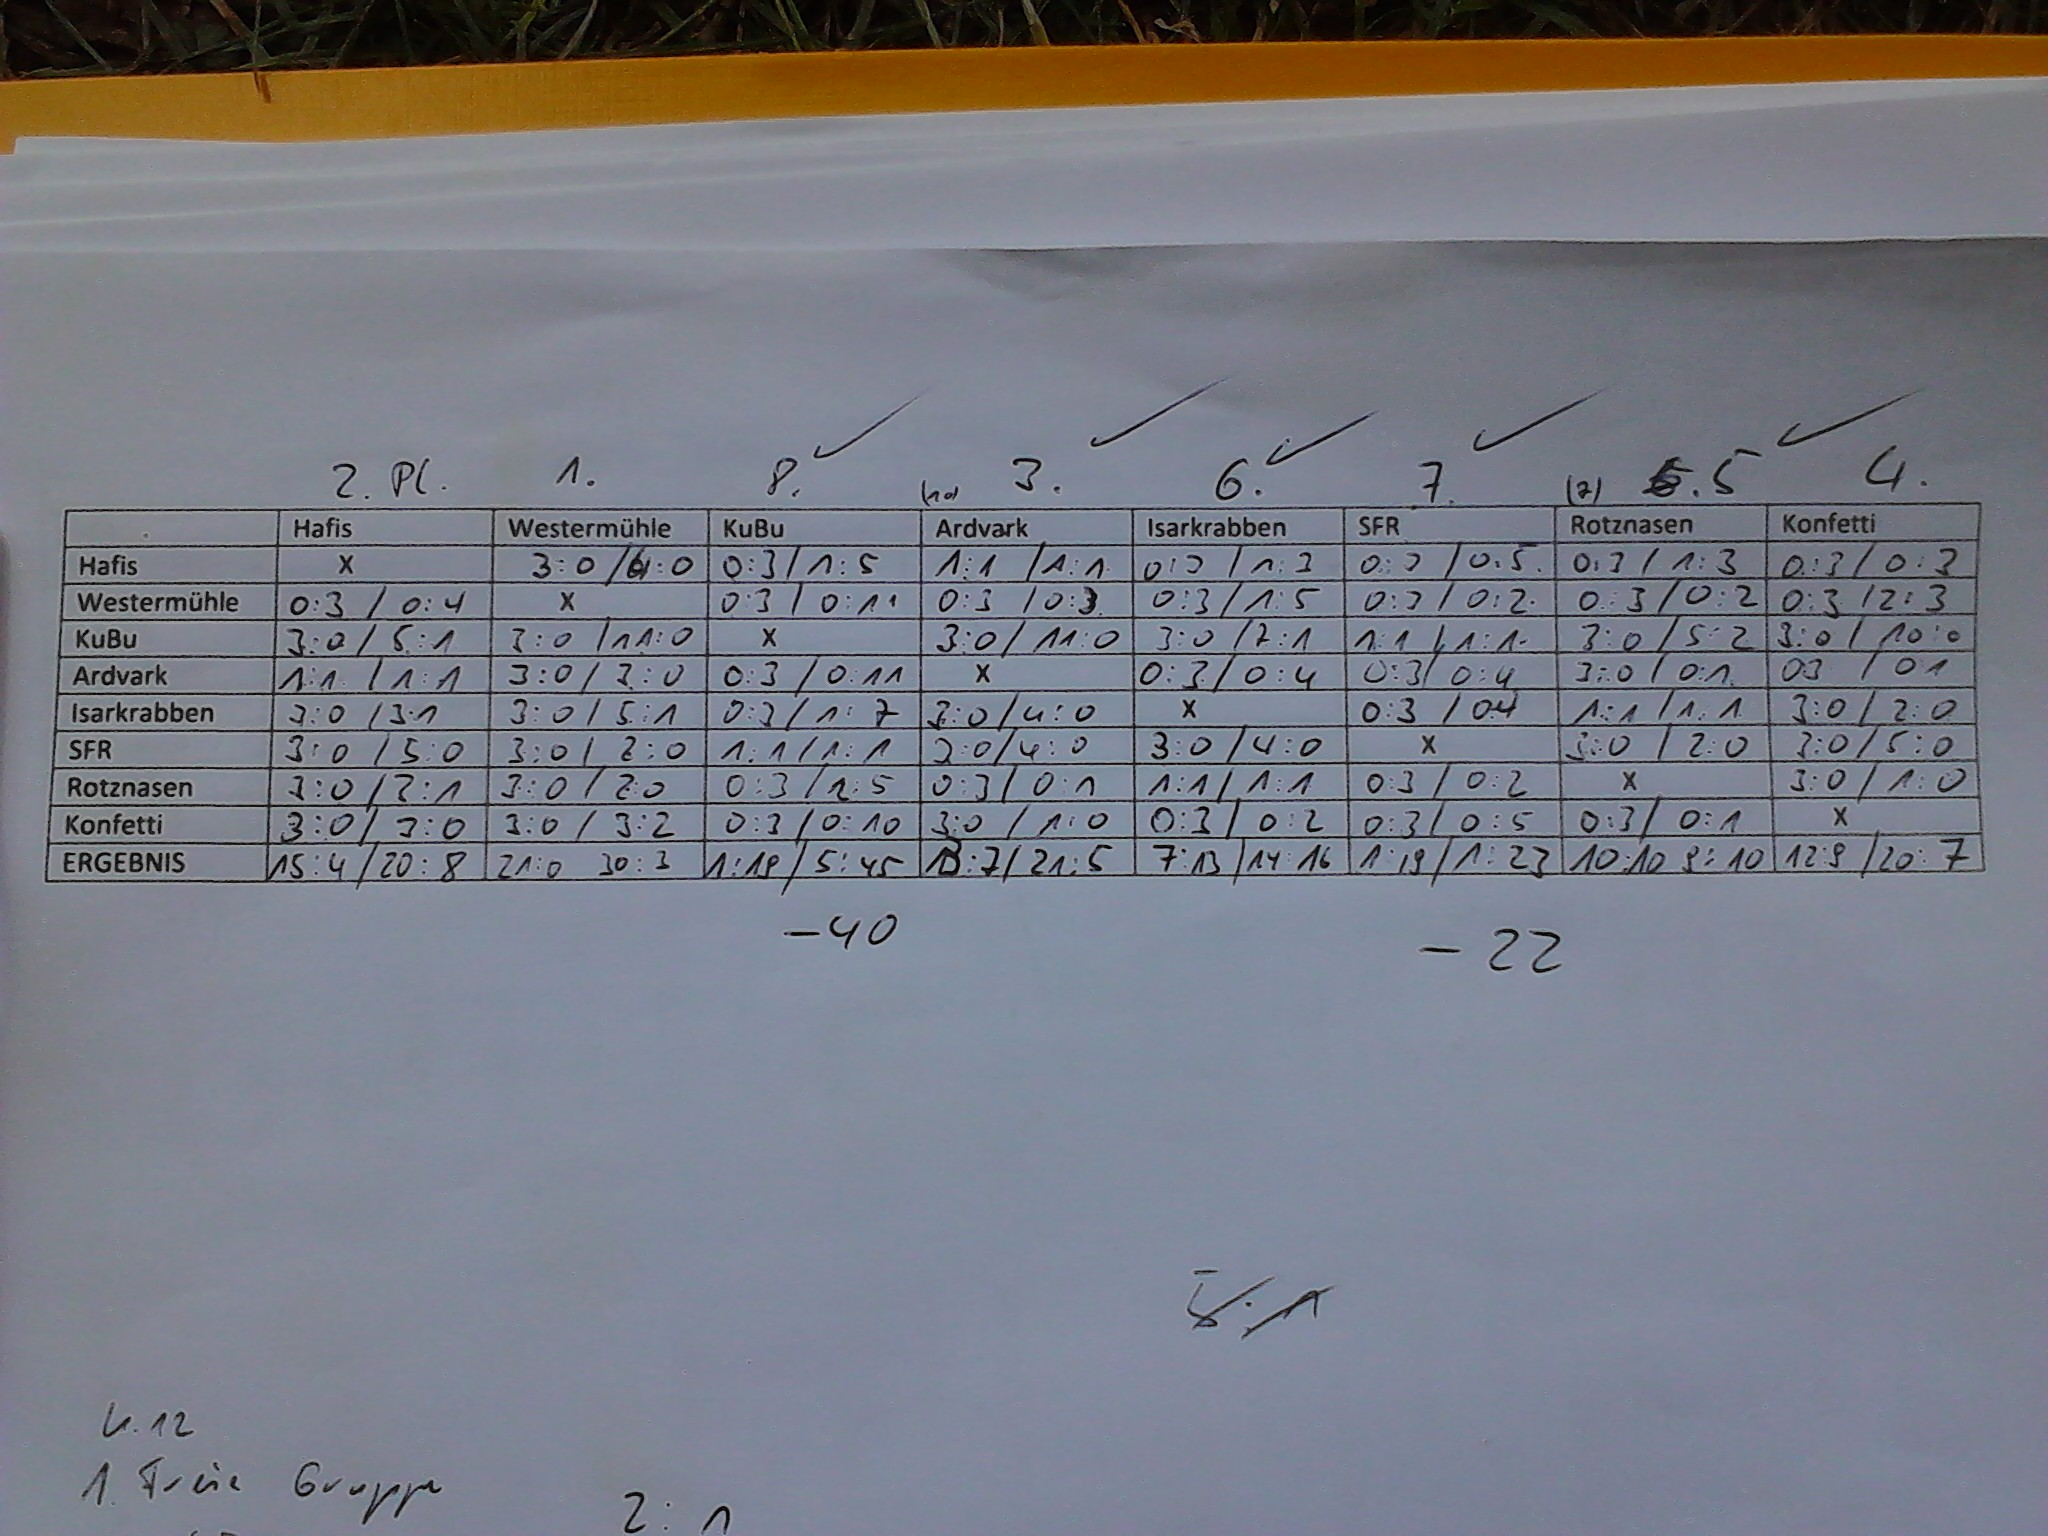 2. Pl. 1. 8. (10) 3. 6. 7. (7) 5 4.
Hafis Westermühle KuBu Ardvark Isarkrabben SFR Rotznasen Konfetti
Hafis X 3:0 / 4:0 0:3 / 1:5 1:1 / 1:1 0:3 / 1:3 0:3 / 0:5 0:3 / 1:3 0:3 / 0:3
Westermühle 0:3 / 0:4 X 0:3 / 0:11 0:3 / 0:3 0:3 / 1:5 0:3 / 0:2 0:3 / 0:2 0:3 / 2:3
KuBu 3:0 / 5:1 3:0 / 11:0 X 3:0 / 11:0 3:0 / 7:1 1:1 / 1:1 3:0 / 5:2 3:0 / 10:0
Ardvark 1:1 / 1:1 3:0 / 3:0 0:3 / 0:11 X 0:3 / 0:4 0:3 / 0:4 3:0 / 0:1 03 / 01
Isarkrabben 3:0 / 3:1 3:0 / 5:1 0:3 / 1:7 3:0 / 4:0 X 0:3 / 04 1:1 / 1:1 3:0 / 2:0
SFR 3:0 / 5:0 3:0 / 2:0 1:1 / 1:1 3:0 / 4:0 3:0 / 4:0 X 3:0 / 2:0 3:0 / 5:0
Rotznasen 3:0 / 3:1 3:0 / 2:0 0:3 / 2:5 0:3 / 0:1 1:1 / 1:1 0:3 / 0:2 X 3:0 / 1:0
Konfetti 3:0 / 3:0 3:0 / 3:2 0:3 / 0:10 3:0 / 1:0 0:3 / 0:2 0:3 / 0:5 0:3 / 0:1 X
ERGEBNIS 15:4 / 20:8 21:0 30:3 1:19 / 5:45 13:7 / 21:5 7:13 / 14:16 1:19 / 1:23 10:10 9:10 12:9 / 20:7
-40 -22
5:1
U.12
1. Freie Gruppe
2:1